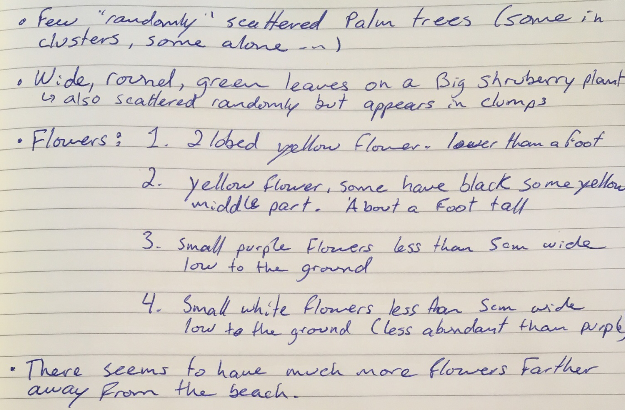 • Few "randomly" scattered Palm trees (some in
clusters, some alone ---)
• Wide, round, green leaves on a Big shruberry plant
↳ also scattered randomly but appears in clumps
• Flowers: 1. 2 lobed yellow flower - lower than a foot
2. yellow flower, some have black some yellow
middle part. About a foot tall
3. Small purple flowers less than 5cm wide
low to the ground
4. Small white flowers less than 5cm wide
low to the ground (less abundant than purple
• There seems to have much more flowers farther
away from the beach.